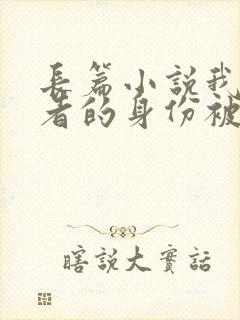 長篇小說我
者的身份被
瞎說大實話